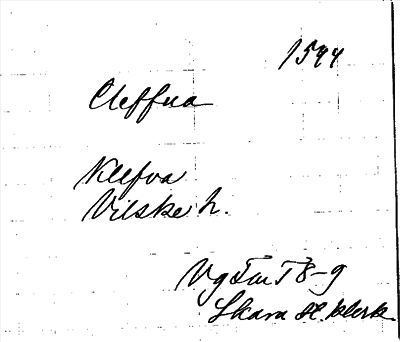 1544
Cleffua
Klefva
Vilske h.
Vg Fm T 8-9
Skara